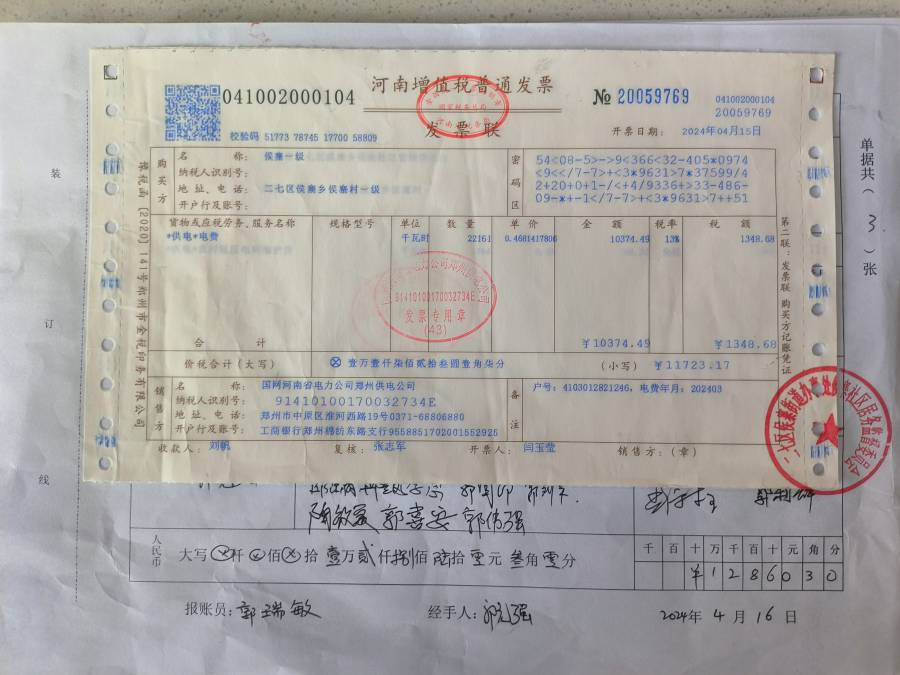 041002000104
河南增值税普通发票
发票联
№ 20059769
041002000104
20059769
校验码 51773 78745 17700 58809
开票日期： 2024年04月15日
购买方
名称： 侯寨一级
纳税人识别号：
地址、电话： 二七区侯寨乡侯寨村一级
开户行及账号：
密码区
54<08-5>->9<366<32-405*0974
<9<</7-7>+<3*9631>7*37599/4
2+20+0+1-/<+4/9336+>33-486-
09-*+-1</7-7>+<3*9631>7++51
货物或应税劳务、服务名称 规格型号 单位 数量 单价 金额 税率 税额
*供电*电费 千瓦时 22161 0.4681417806 10374.49 13% 1348.68
91410100170032734E
发票专用章
(43)
合计 ￥10374.49 ￥1348.68
价税合计（大写） ⊗ 壹万壹仟柒佰贰拾叁圆壹角柒分 （小写） ￥11723.17
销售方
名称： 国网河南省电力公司郑州供电公司
纳税人识别号： 91410100170032734E
地址、电话： 郑州市中原区淮河西路19号0371-68806880
开户行及账号： 工商银行郑州棉纺东路支行9558851702001552925
备注
户号：4103012821246，电费年月：202403
收款人： 刘帆 复核： 张志军 开票人： 闫玉莹 销售方：（章）
豫税函[2020]141号郑州市金税印务有限公司
第二联：发票联 购买方记账凭证
单据共（3）张
装
订
线
人民币
大写 仟 佰 拾 壹万贰仟捌佰陆拾零元叁角零分
千 百 十 万 千 百 十 元 角 分
￥ 1 2 8 6 0 3 0
报账员：郭瑞敏
经手人：
2024年 4月 16日